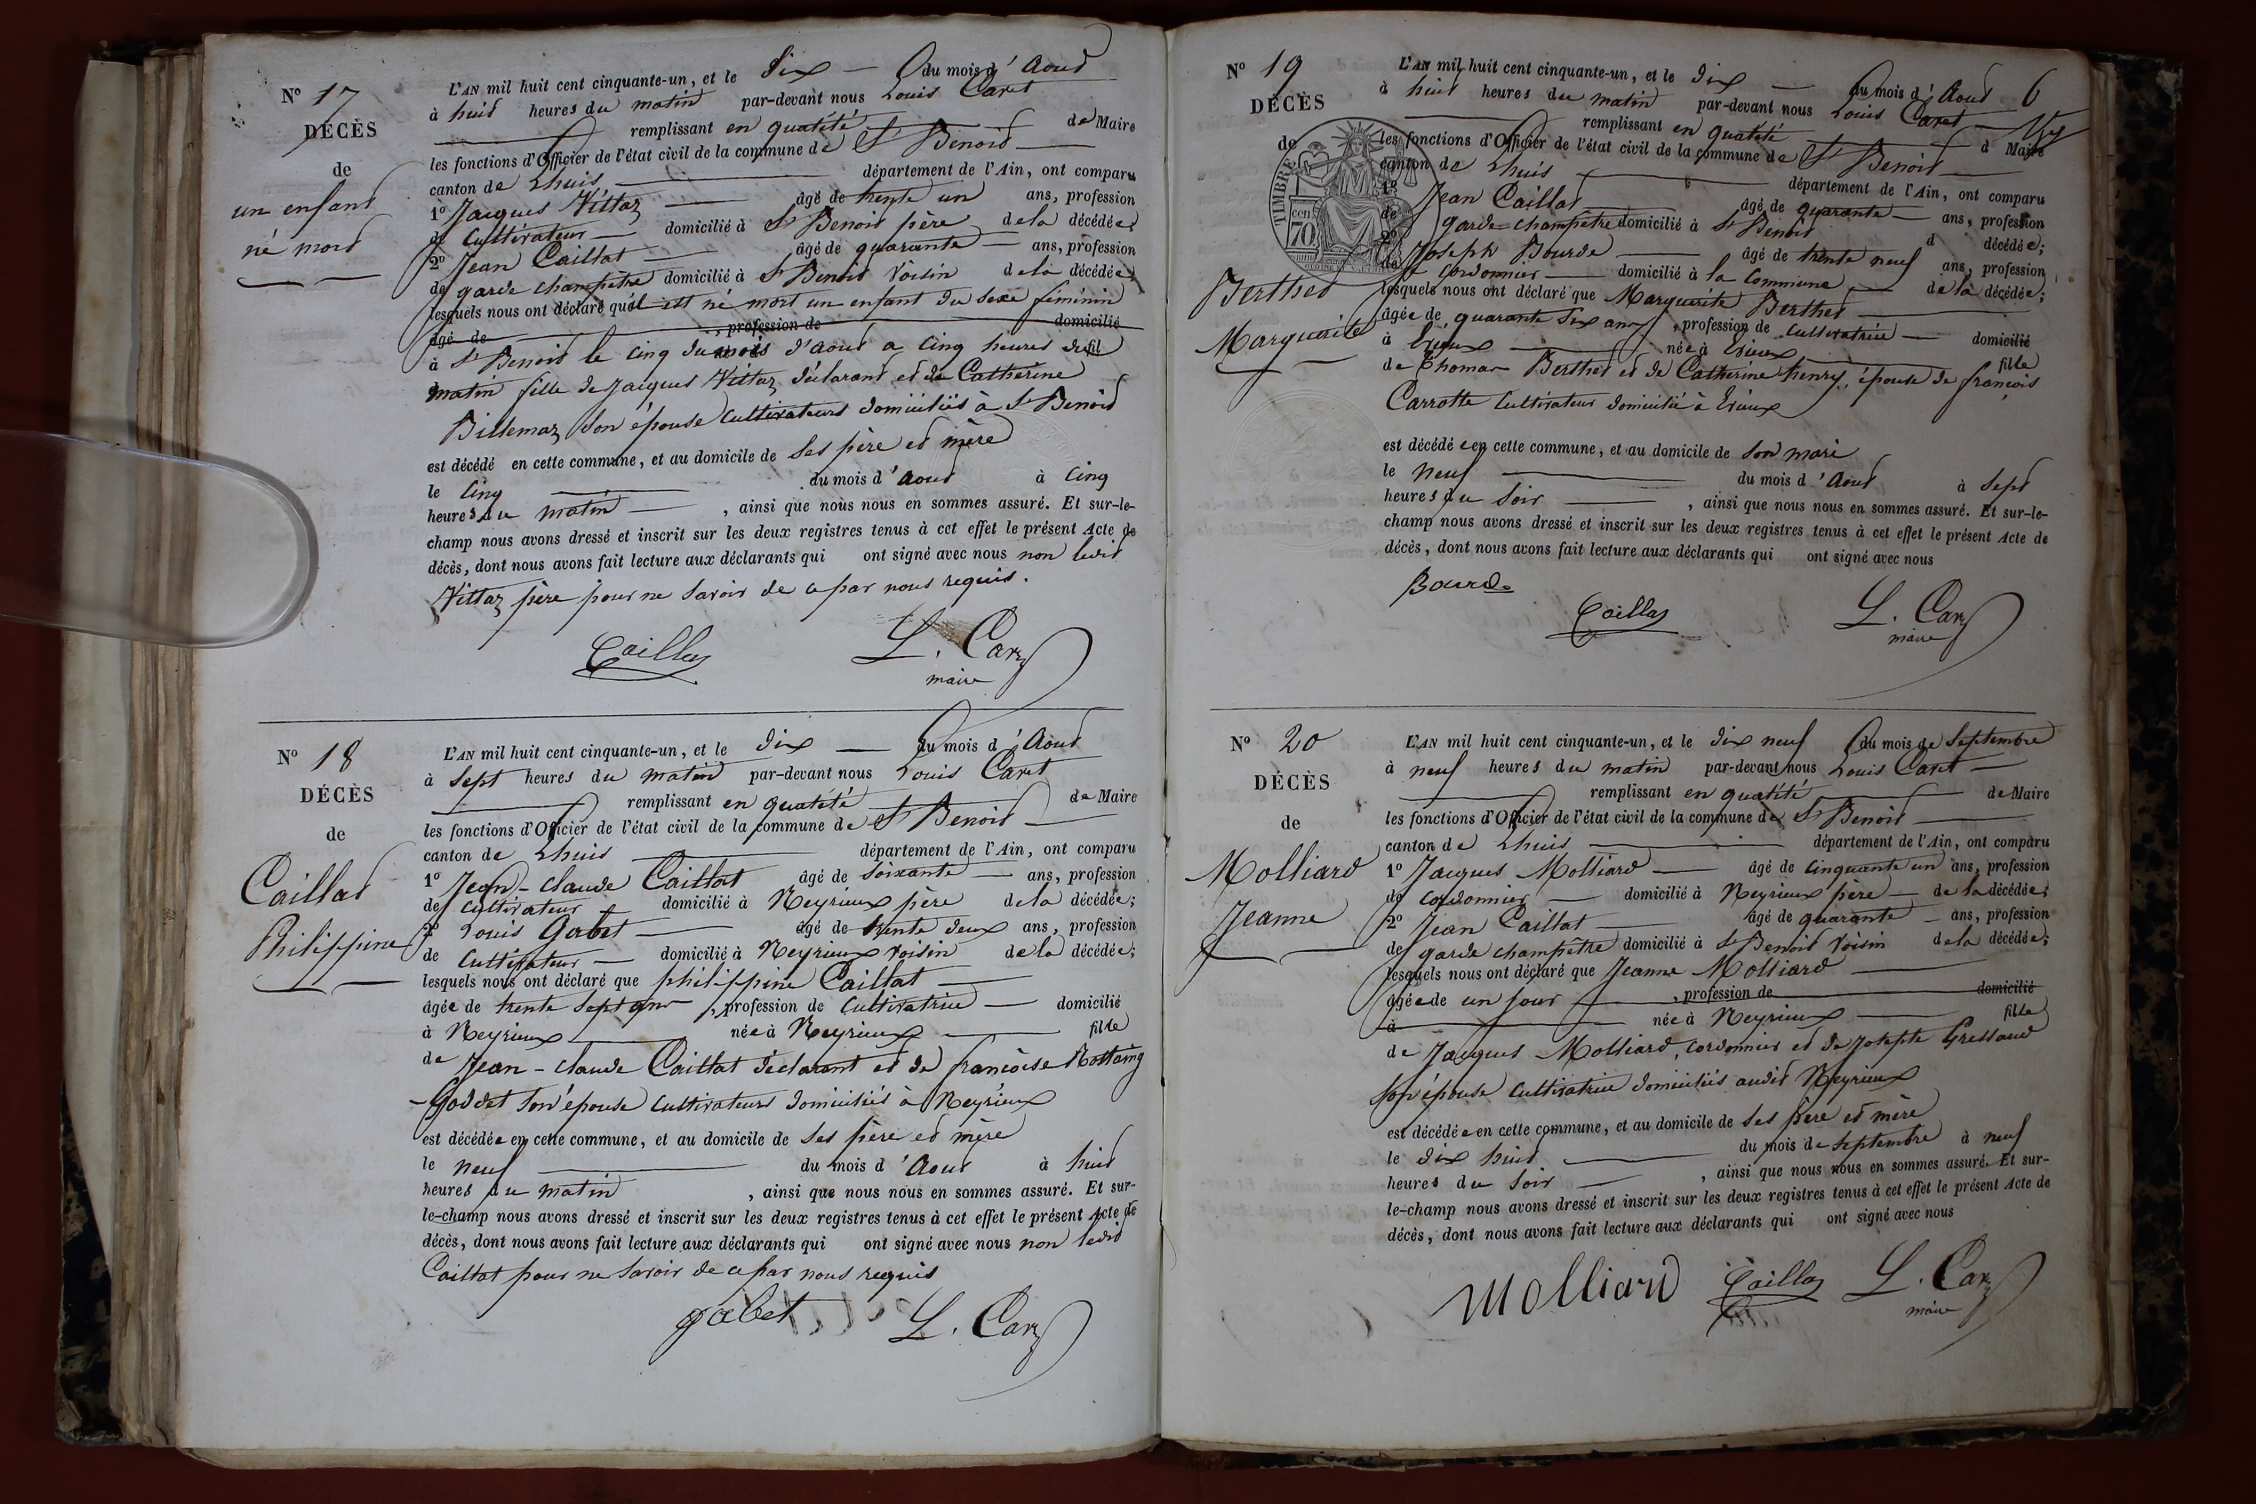 N° 17
DÉCÈS
de
un enfant
né mort
L'AN mil huit cent cinquante-un, et le dix du mois d'Aout
à huit heures du matin par-devant nous Louis Caret
remplissant en qualité de Maire
les fonctions d'Officier de l'état civil de la commune de St Benoit
canton de Lhuis département de l'Ain, ont comparu
1° Jacques Vittoz âgé de trente un ans, profession
de Cultivateur domicilié à St Benoit père de la décédée;
2° Jean Caillat âgé de quarante ans, profession
de garde champêtre domicilié à St Benoit Voisin de la décédée;
lesquels nous ont déclaré qu'il est né mort un enfant du sexe féminin
âgé de , profession de domicilié
à St Benoit le cinq du mois d'aout a cinq heures du fil
matin fille de Jacques Vittoz déclarant et de Catherine
Billemaz son épouse cultivateurs domiciliés à St Benoit
est décédé en cette commune, et au domicile de ses père et mère
le cinq du mois d'Aout à cinq
heures du matin , ainsi que nous nous en sommes assuré. Et sur-le-
champ nous avons dressé et inscrit sur les deux registres tenus à cet effet le présent Acte de
décès, dont nous avons fait lecture aux déclarants qui ont signé avec nous non ledit
Vittoz père pour ne savoir de ce par nous requis.
Caillat L. Caret
maire
N° 18
DÉCÈS
de
Caillat
Philippine
L'AN mil huit cent cinquante-un, et le dix du mois d'Aout
à sept heures du matin par-devant nous Louis Caret
remplissant en qualité de Maire
les fonctions d'Officier de l'état civil de la commune de St Benoit
canton de Lhuis département de l'Ain, ont comparu
1° Jean-Claude Caillat âgé de soixante ans, profession
de cultivateur domicilié à Neyrieux père de la décédée;
2° Louis Gabet âgé de trente deux ans, profession
de Cultivateur domicilié à Neyrieux voisin de la décédée;
lesquels nous ont déclaré que philippine Caillat
âgée de trente sept ans , profession de Cultivatrice domicilié
à Neyrieux née à Neyrieux fille
de Jean-Claude Caillat déclarant et de françoise
Goddet son épouse cultivateurs domiciliés à Neyrieux
est décédée en cette commune, et au domicile de ses père et mère
le neuf du mois d'Aout à huit
heures du matin , ainsi que nous nous en sommes assuré. Et sur-
le-champ nous avons dressé et inscrit sur les deux registres tenus à cet effet le présent Acte de
décès, dont nous avons fait lecture aux déclarants qui ont signé avec nous non ledit
Caillat pour ne savoir de ce par nous requis
gabet L. Caret
N° 19
DÉCÈS
de
Berthet
Marguerite
TIMBRE
cen
70
6
L'AN mil huit cent cinquante-un, et le dix du mois d'Aout
à huit heures du matin par-devant nous Louis Caret
remplissant en qualité d Maire
les fonctions d'Officier de l'état civil de la commune de St Benoit
canton de Lhuis département de l'Ain, ont comparu
1° Jean Caillat âgé de quarante ans, profession
de garde-champêtre domicilié à St Benoit d décédée;
2° Joseph Bourde âgé de trente neuf ans, profession
de cordonnier domicilié à la commune de la décédée;
lesquels nous ont déclaré que Marguerite Berthet
âgée de quarante six ans , profession de cultivatrice domicilié
à Erieux née à Erieux fille
de Thomas Berthet et de Catherine henry, épouse de françois
Carrotte cultivateur domicilié à Erieux
est décédée en cette commune, et au domicile de son mari
le neuf du mois d'Aout à sept
heures du soir , ainsi que nous nous en sommes assuré. Et sur-le-
champ nous avons dressé et inscrit sur les deux registres tenus à cet effet le présent Acte de
décès, dont nous avons fait lecture aux déclarants qui ont signé avec nous
Bourde
Caillat L. Caret
maire
N° 20
DÉCÈS
de
Molliard
Jeanne
L'AN mil huit cent cinquante-un, et le dix neuf du mois de Septembre
à neuf heures du matin par-devant nous Louis Caret
remplissant en qualité de Maire
les fonctions d'Officier de l'état civil de la commune de St Benoit
canton de Lhuis département de l'Ain, ont comparu
1° Jacques Molliard âgé de cinquante un ans, profession
de cordonnier domicilié à Neyrieux père de la décédée;
2° Jean Caillat âgé de quarante ans, profession
de garde champêtre domicilié à St Benoit voisin de la décédée;
lesquels nous ont déclaré que Jeanne Molliard
âgée de un jour , profession de domicilié
à née à Neyrieux fille
de Jacques Molliard, cordonnier et de Josephte Grelland
son épouse cultivatrice domiciliés audit Neyrieux
est décédée en cette commune, et au domicile de ses père et mère
le dix huit du mois de septembre à neuf
heures du soir , ainsi que nous nous en sommes assuré. Et sur-
le-champ nous avons dressé et inscrit sur les deux registres tenus à cet effet le présent Acte de
décès, dont nous avons fait lecture aux déclarants qui ont signé avec nous
Molliard Caillat L. Caret
maire